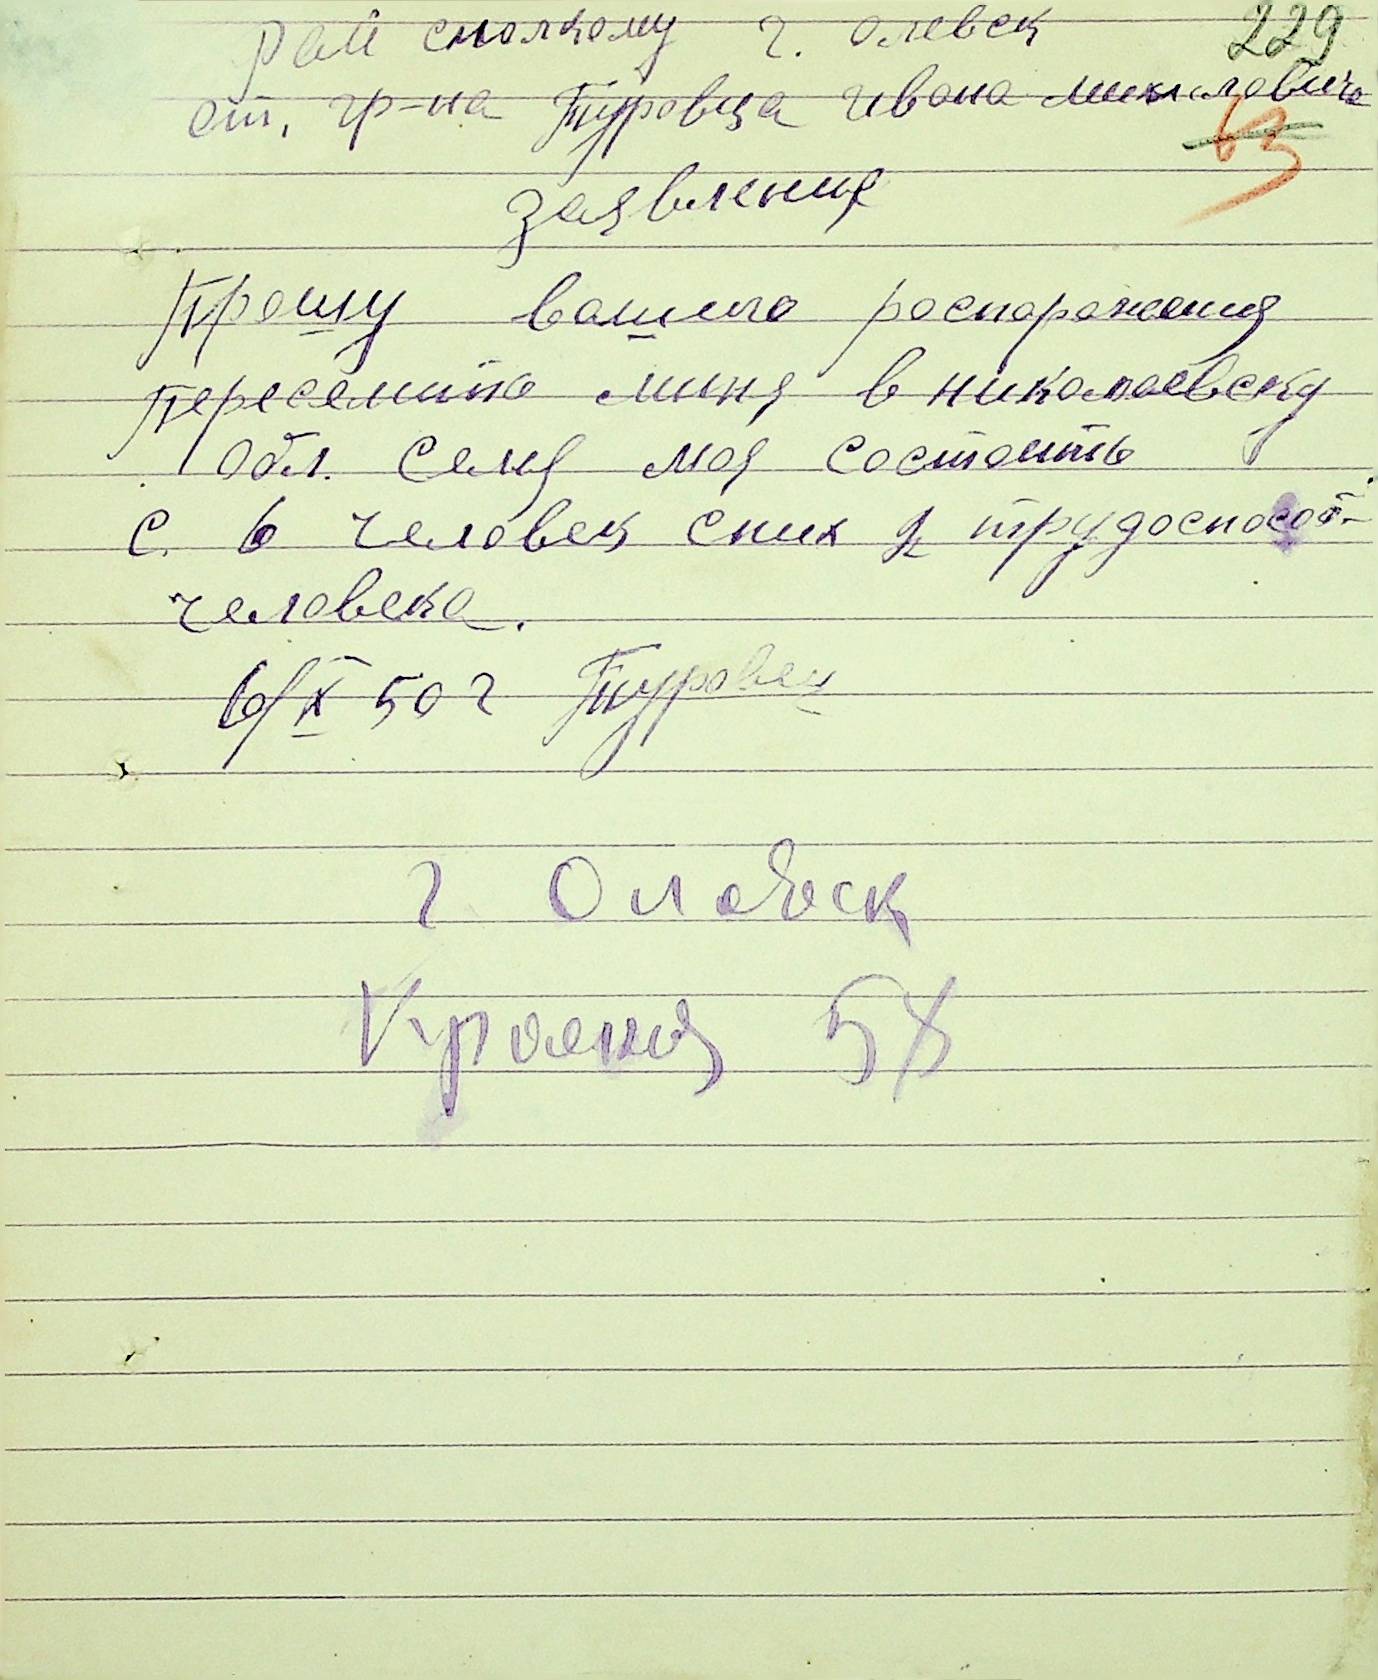 Рай сполкому г. Олевск 229
от, гр-на Туровца Ивана Микиловича
63
заявления
Прошу вашего роспоражения
переселить миня в николаевску
обл. семя моя состоить
с. 6 человек сних 2 трудоспособ-
человека.
6/X 50 г Туровец
г Олевск
58